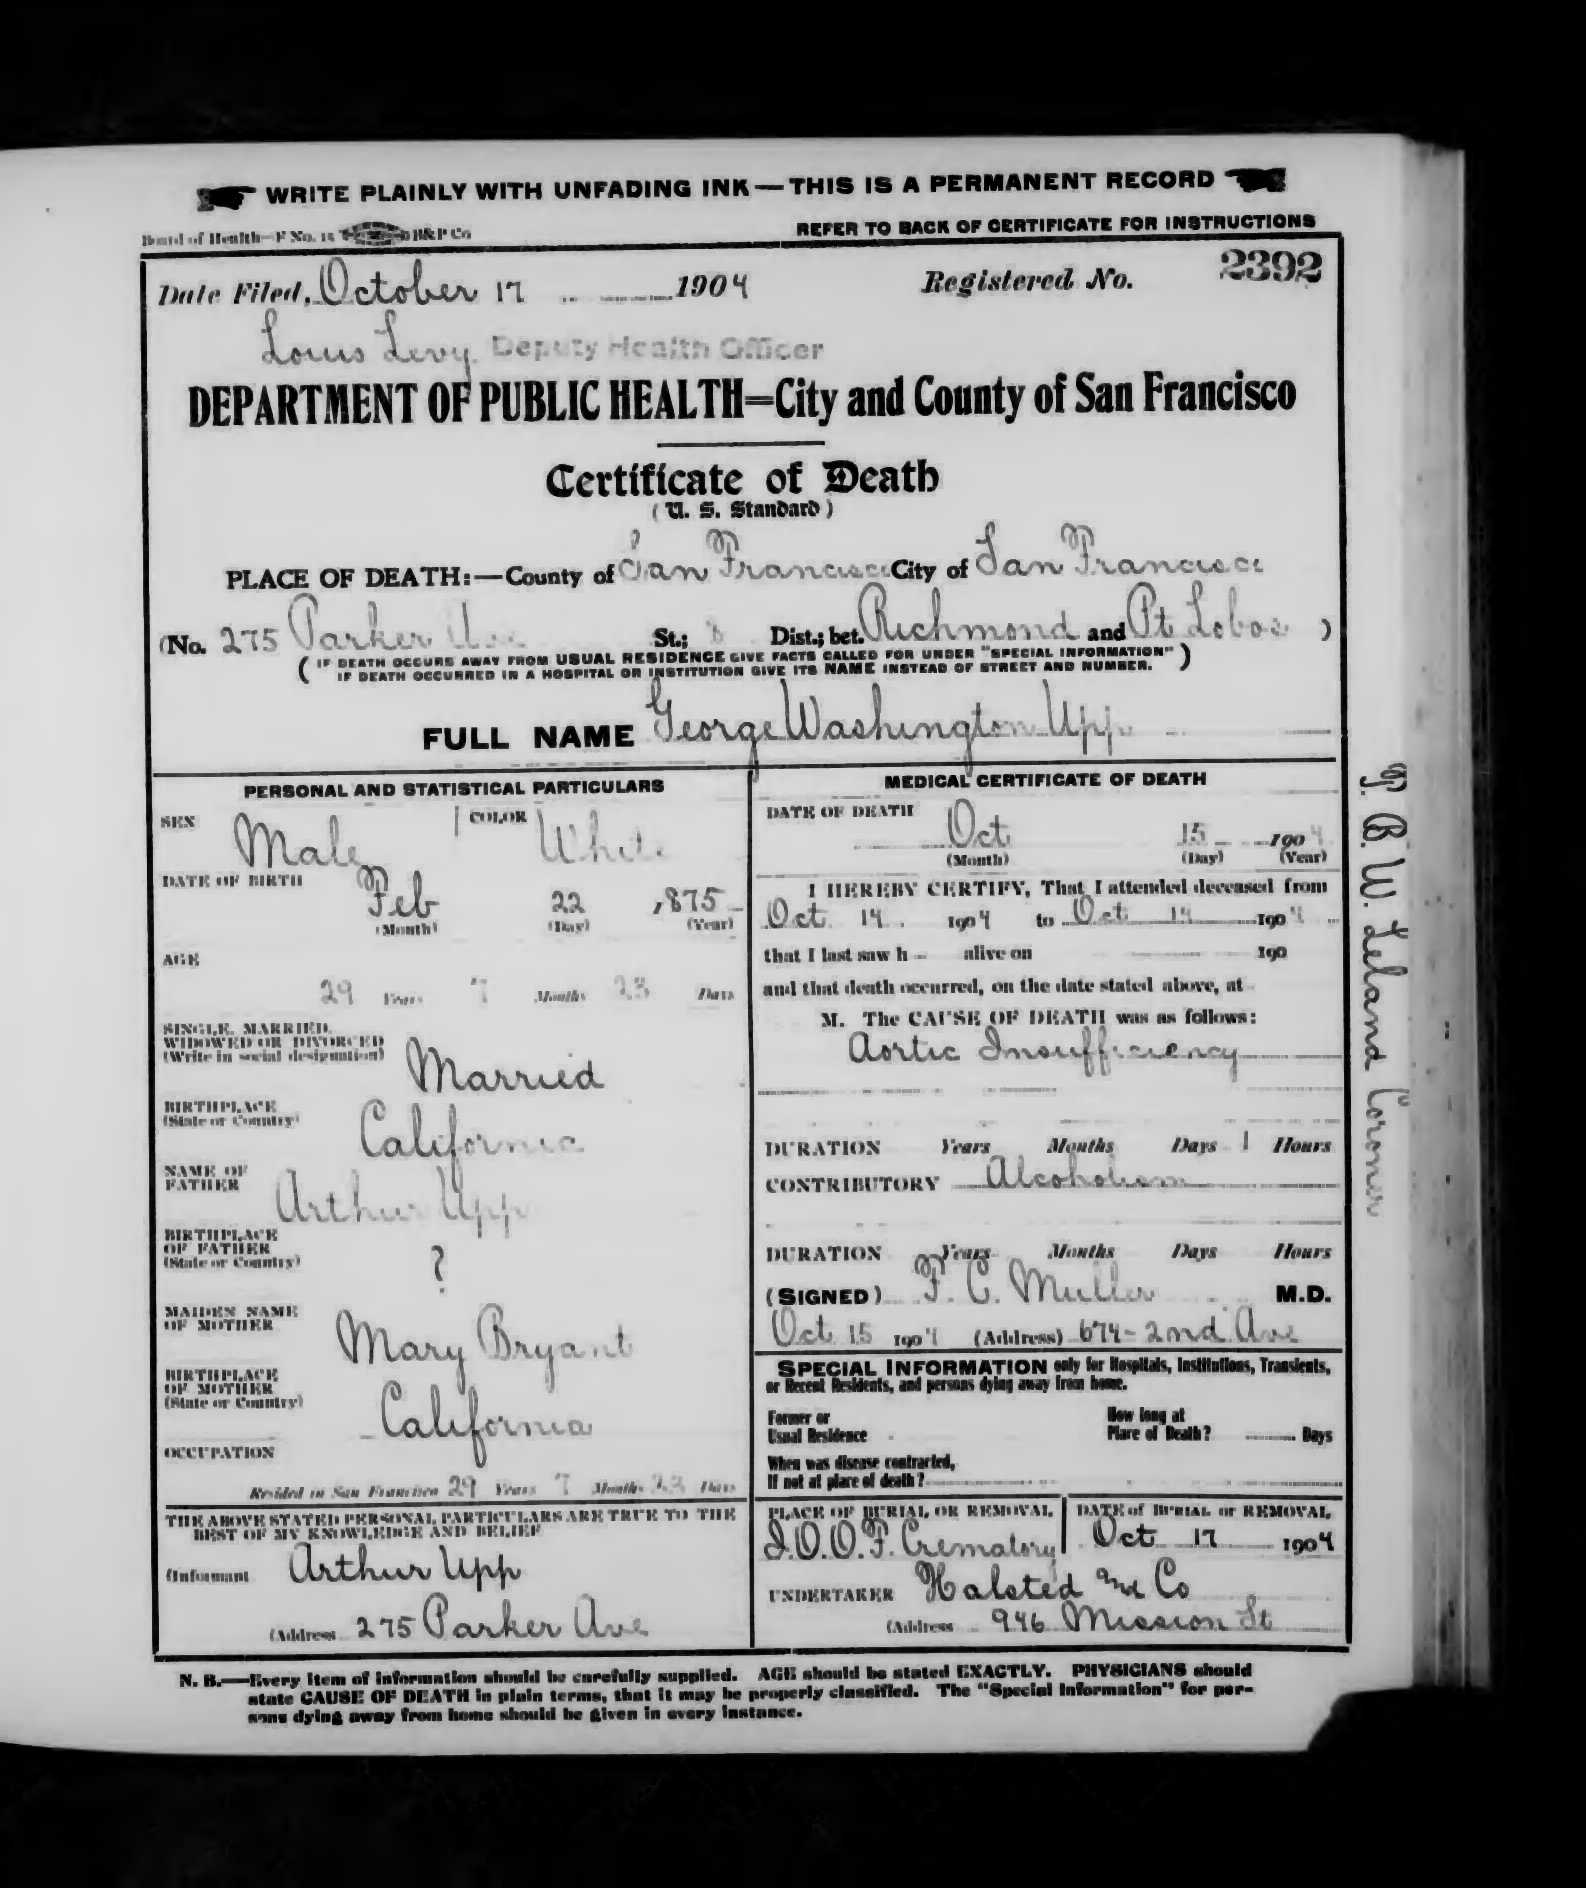 WRITE PLAINLY WITH UNFADING INK—THIS IS A PERMANENT RECORD
Board of Health—F No. 15 B&P Co
REFER TO BACK OF CERTIFICATE FOR INSTRUCTIONS
Date Filed, October 17 1904 Registered No. 2392
Louis Levy. Deputy Health Officer
DEPARTMENT OF PUBLIC HEALTH=City and County of San Francisco
Certificate of Death
(U. S. Standard)
PLACE OF DEATH:—County of San Francisco City of San Francisco
(No. 275 Parker Ave St.; 8 Dist.; bet. Richmond and Pt Lobos )
(IF DEATH OCCURS AWAY FROM USUAL RESIDENCE GIVE FACTS CALLED FOR UNDER "SPECIAL INFORMATION"
IF DEATH OCCURRED IN A HOSPITAL OR INSTITUTION GIVE ITS NAME INSTEAD OF STREET AND NUMBER.)
FULL NAME George Washington Upp
PERSONAL AND STATISTICAL PARTICULARS
SEX Male COLOR White
DATE OF BIRTH
Feb 22 ,875
(Month) (Day) (Year)
AGE
29 Years 7 Months 23 Days
SINGLE, MARRIED,
WIDOWED OR DIVORCED
(Write in social designation) Married
BIRTHPLACE
(State or Country) California
NAME OF
FATHER Arthur Upp
BIRTHPLACE
OF FATHER
(State or Country) ?
MAIDEN NAME
OF MOTHER Mary Bryant
BIRTHPLACE
OF MOTHER
(State or Country) California
OCCUPATION
Resided in San Francisco 29 Years 7 Months 23 Days
THE ABOVE STATED PERSONAL PARTICULARS ARE TRUE TO THE
BEST OF MY KNOWLEDGE AND BELIEF
(Informant Arthur Upp
(Address 275 Parker Ave
MEDICAL CERTIFICATE OF DEATH
DATE OF DEATH
Oct 15 1904
(Month) (Day) (Year)
I HEREBY CERTIFY, That I attended deceased from
Oct 14 1904 to Oct 14 1904
that I last saw h alive on 190
and that death occurred, on the date stated above, at
M. The CAUSE OF DEATH was as follows:
Aortic Insufficiency
DURATION Years Months Days 1 Hours
CONTRIBUTORY Alcoholism
DURATION Years Months Days Hours
(SIGNED) F. C. Muller M.D.
Oct 15 1904 (Address) 674-2nd Ave
SPECIAL INFORMATION only for Hospitals, Institutions, Transients,
or Recent Residents, and persons dying away from home.
Former or
Usual Residence
How long at
Place of Death? Days
When was disease contracted,
If not at place of death?
PLACE OF BURIAL OR REMOVAL
I.O.O.F. Crematory
DATE of BURIAL or REMOVAL
Oct 17 1904
UNDERTAKER Halsted and Co
(Address 946 Mission St
N. B.—Every item of information should be carefully supplied. AGE should be stated EXACTLY. PHYSICIANS should
state CAUSE OF DEATH in plain terms, that it may be properly classified. The "Special Information" for per-
sons dying away from home should be given in every instance.
T. B. W. Leland Coroner